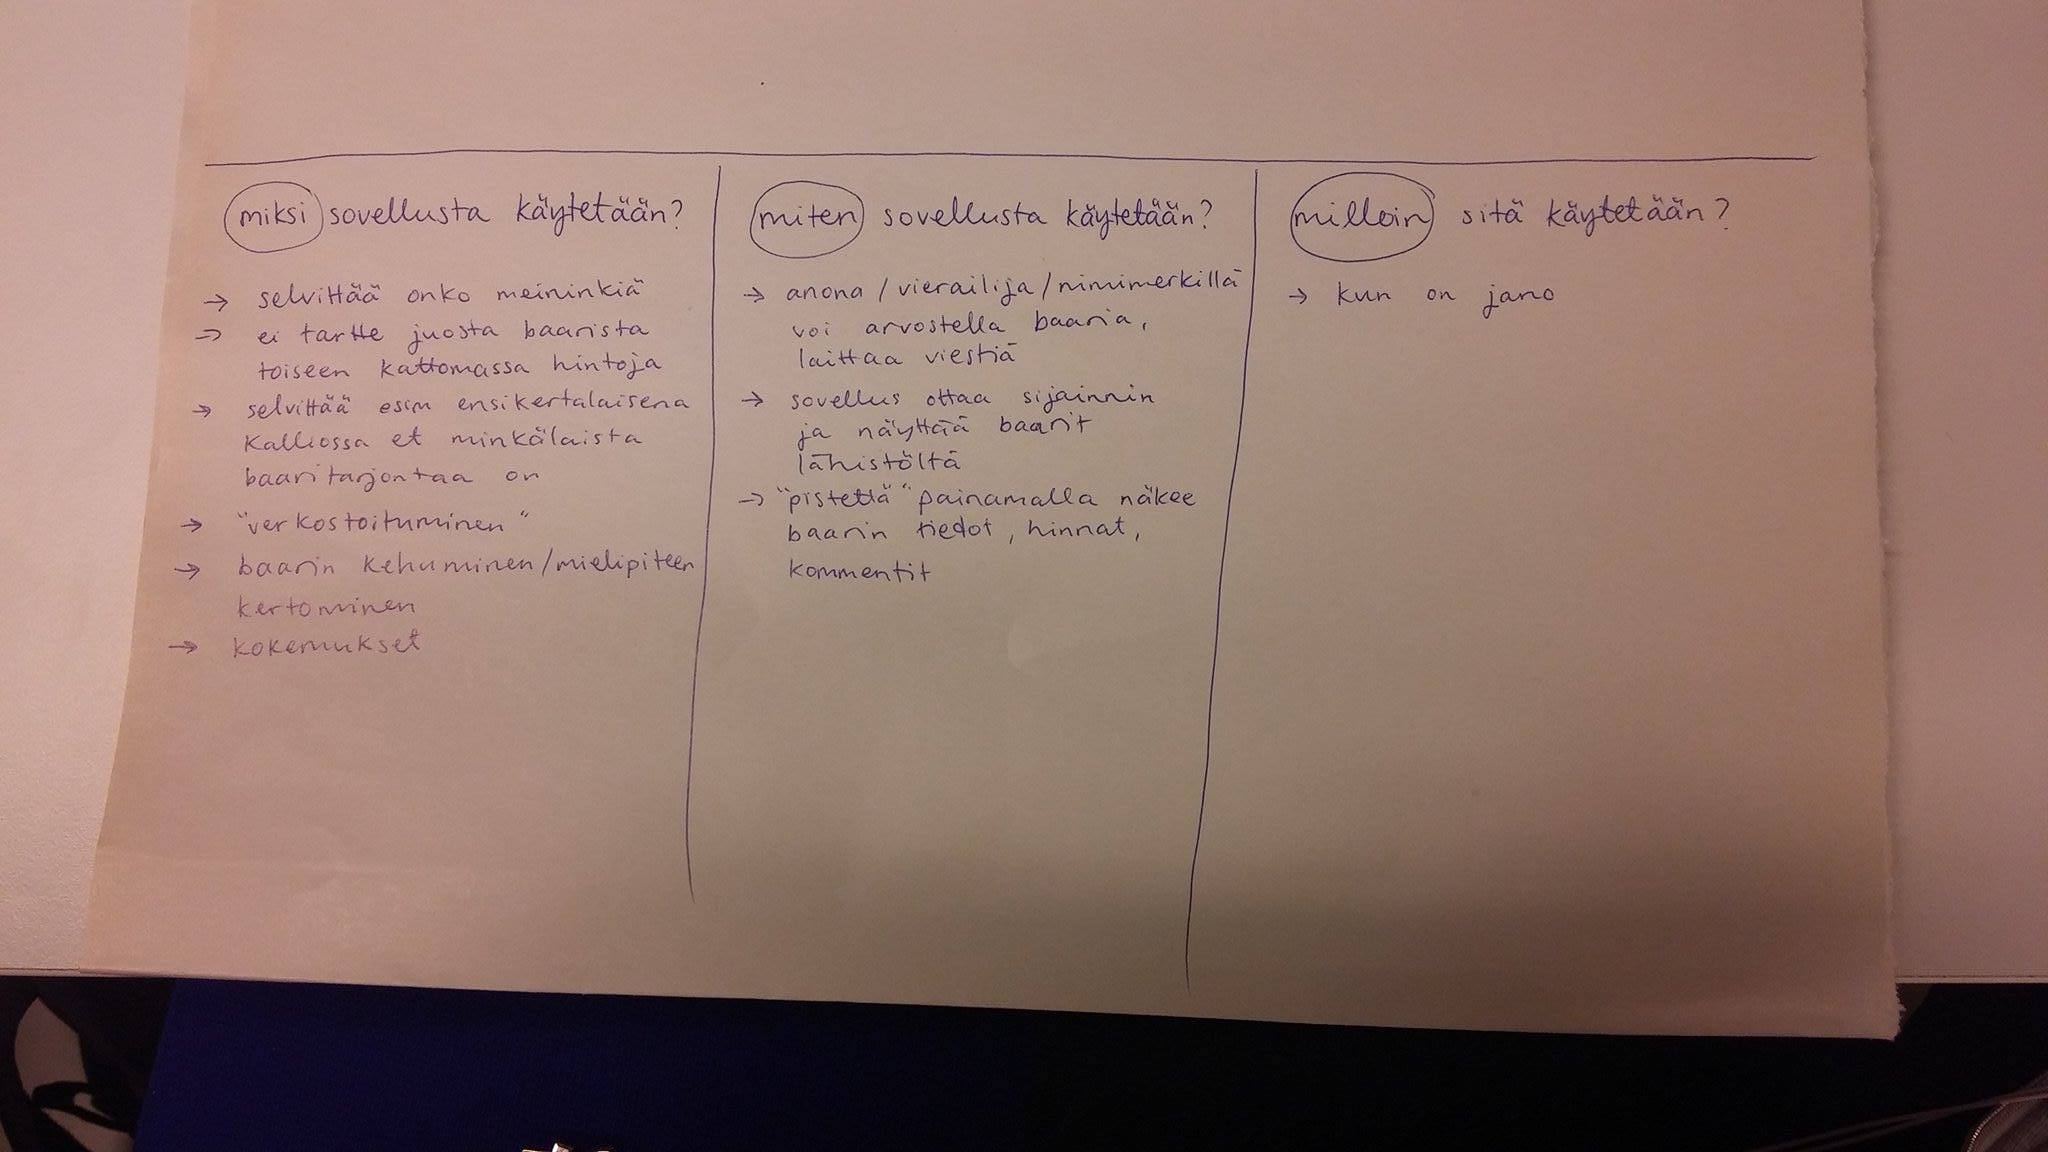 miksi sovellusta käytetään?
→ selvittää onko meininkiä
→ ei tartte juosta baarista
toiseen kattomassa hintoja
→ selvittää esim ensikertalaisena
Kalliossa et minkälaista
baaritarjontaa on
→ "verkostoituminen"
→ baarin kehuminen/mielipiteen
kertominen
→ kokemukset
miten sovellusta käytetään?
→ anona/vierailija/nimimerkillä
voi arvostella baaria,
laittaa viestiä
→ sovellus ottaa sijainnin
ja näyttää baarit
lähistöltä
→ "pistettä" painamalla näkee
baarin tiedot, hinnat,
kommentit
milloin sitä käytetään?
→ kun on jano